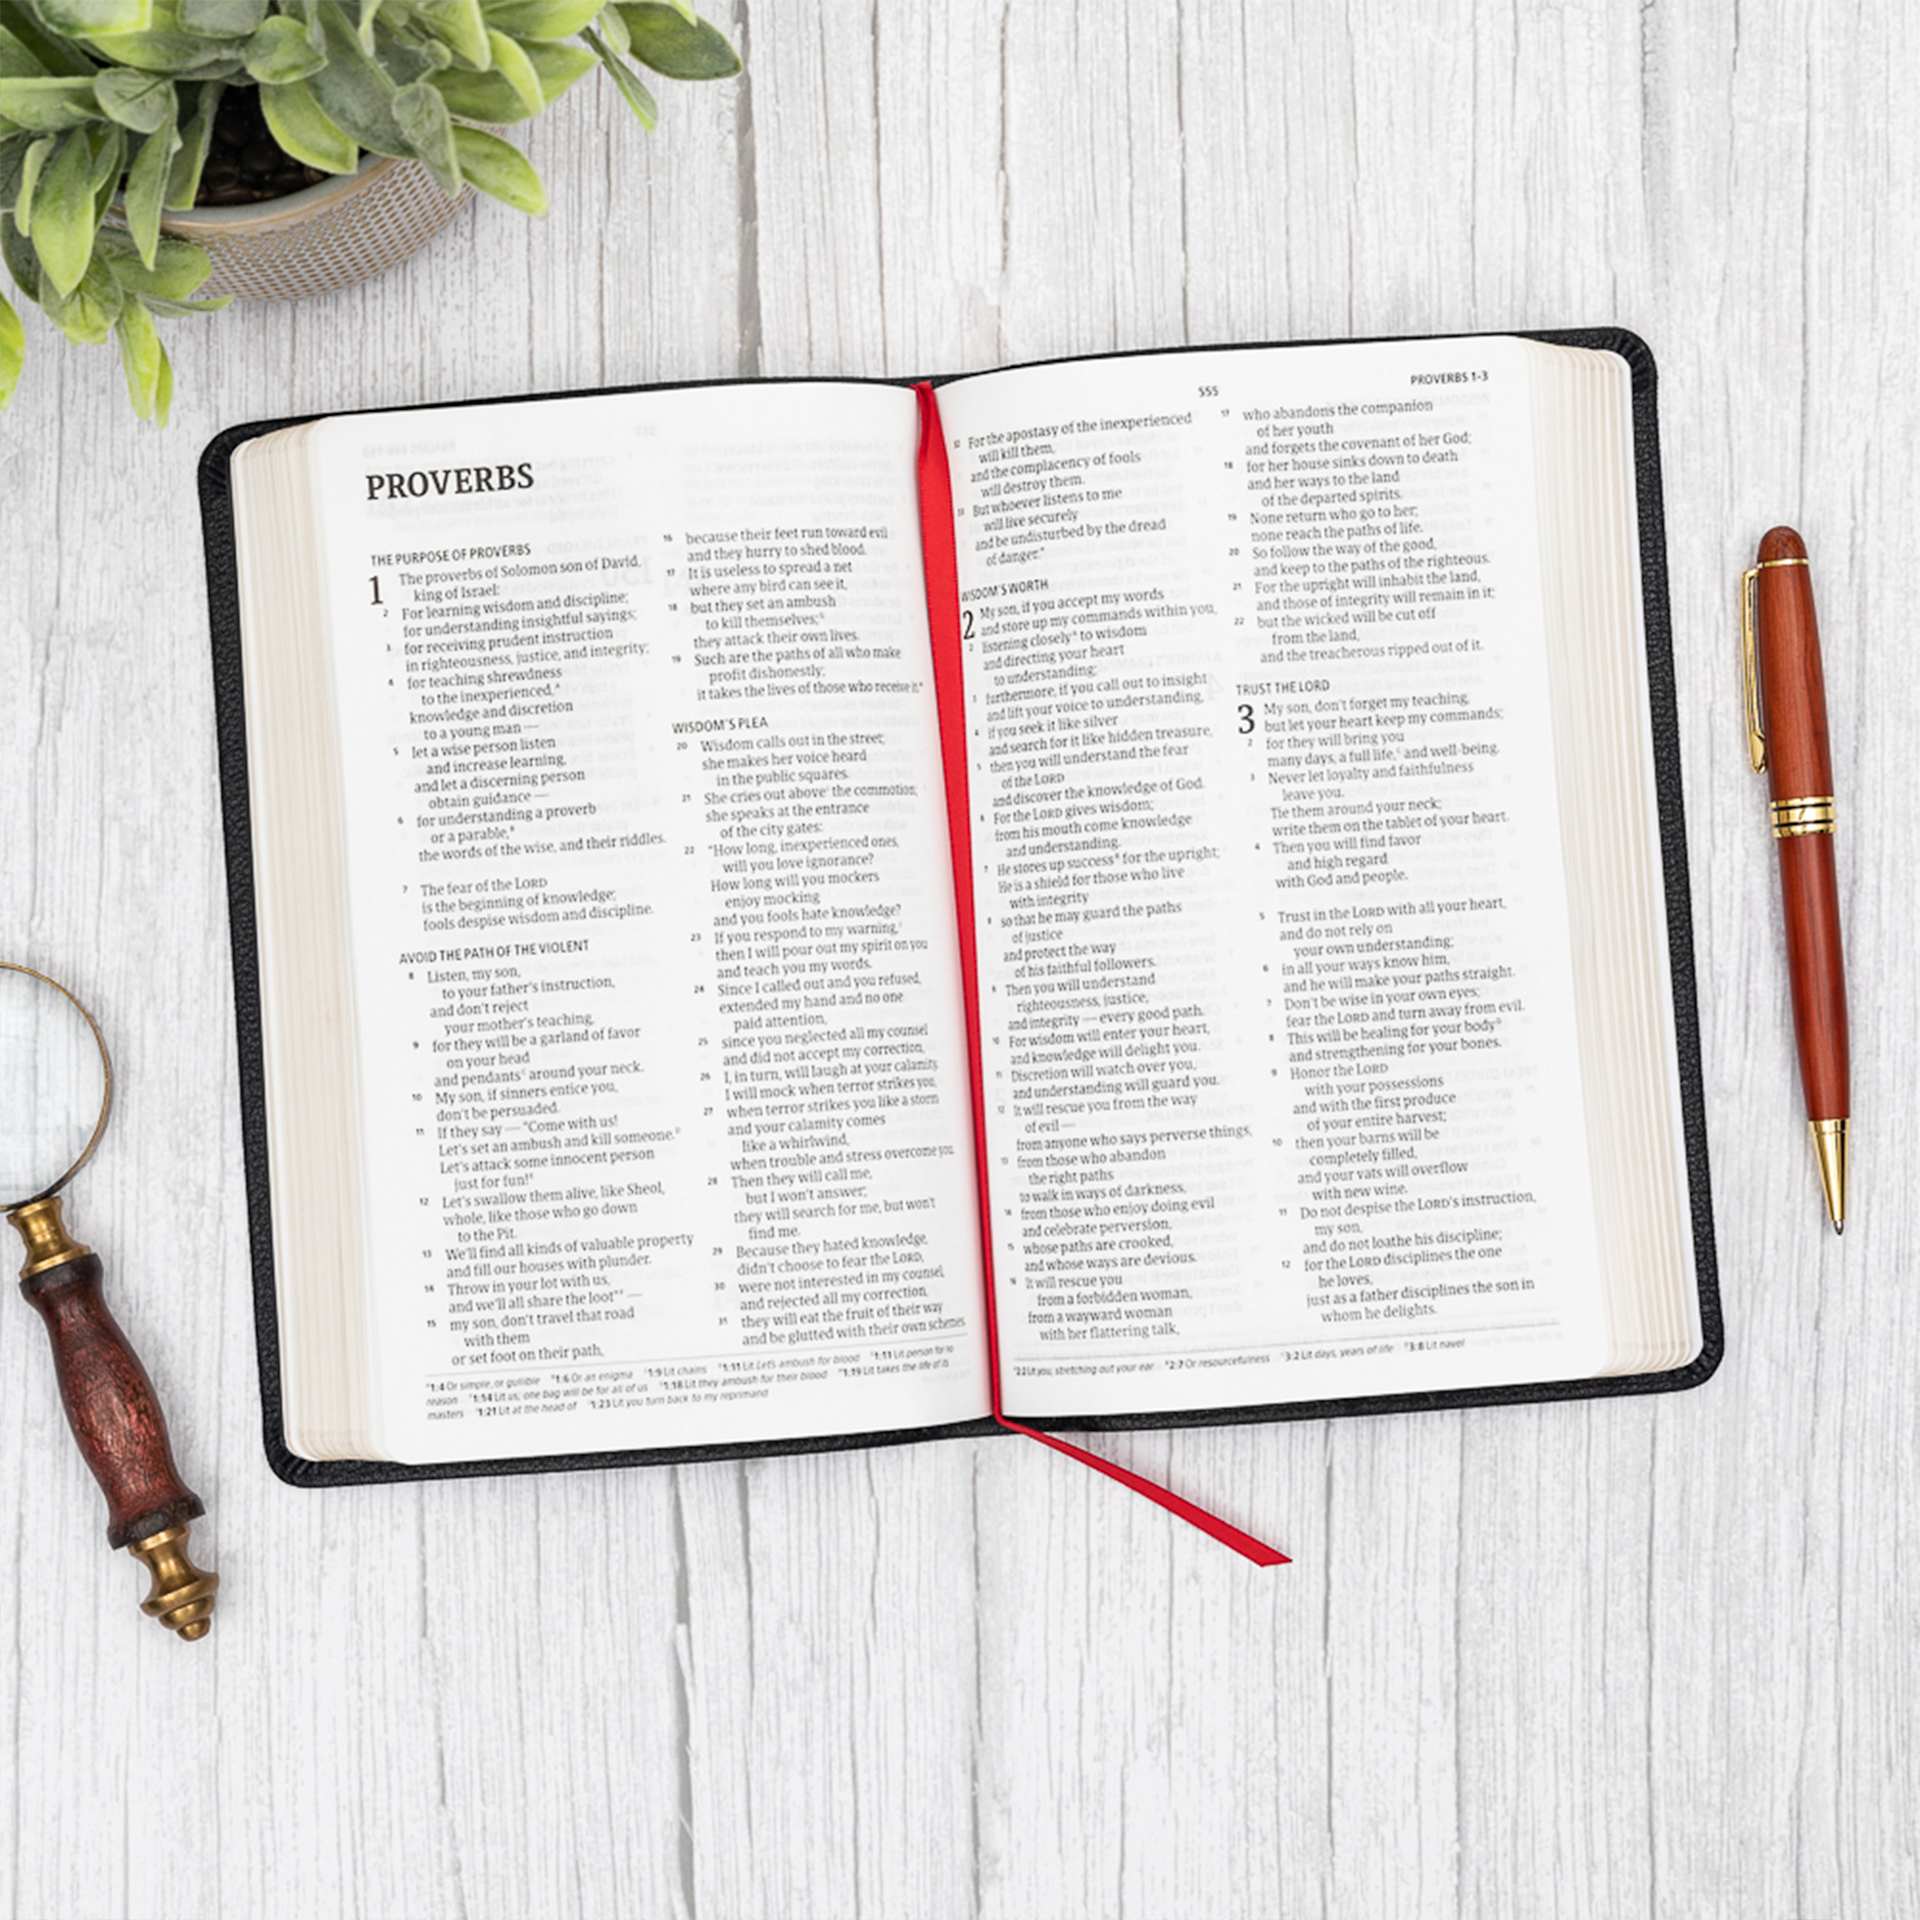 PROVERBS
THE PURPOSE OF PROVERBS
1 The proverbs of Solomon son of David,
king of Israel:
2 For learning wisdom and discipline;
for understanding insightful sayings;
3 for receiving prudent instruction
in righteousness, justice, and integrity;
4 for teaching shrewdness
to the inexperienced,ᴬ
knowledge and discretion
to a young man —
5 let a wise person listen
and increase learning,
and let a discerning person
obtain guidance —
6 for understanding a proverb
or a parable,ᴮ
the words of the wise, and their riddles.
7 The fear of the LORD
is the beginning of knowledge;
fools despise wisdom and discipline.
AVOID THE PATH OF THE VIOLENT
8 Listen, my son,
to your father's instruction,
and don't reject
your mother's teaching,
9 for they will be a garland of favor
on your head
and pendantsᶜ around your neck.
10 My son, if sinners entice you,
don't be persuaded.
11 If they say — "Come with us!
Let's set an ambush and kill someone.ᴰ
Let's attack some innocent person
just for fun!ᴱ
12 Let's swallow them alive, like Sheol,
whole, like those who go down
to the Pit.
13 We'll find all kinds of valuable property
and fill our houses with plunder.
14 Throw in your lot with us,
and we'll all share the loot"ᶠ —
15 my son, don't travel that road
with them
or set foot on their path,
16 because their feet run toward evil
and they hurry to shed blood.
17 It is useless to spread a net
where any bird can see it,
18 but they set an ambush
to kill themselves;ᴳ
they attack their own lives.
19 Such are the paths of all who make
profit dishonestly;
it takes the lives of those who receive it.ᴴ
WISDOM'S PLEA
20 Wisdom calls out in the street;
she makes her voice heard
in the public squares.
21 She cries out aboveᴵ the commotion;
she speaks at the entrance
of the city gates:
22 "How long, inexperienced ones,
will you love ignorance?
How long will you mockers
enjoy mocking
and you fools hate knowledge?
23 If you respond to my warning,ᴶ
then I will pour out my spirit on you
and teach you my words.
24 Since I called out and you refused,
extended my hand and no one
paid attention,
25 since you neglected all my counsel
and did not accept my correction,
26 I, in turn, will laugh at your calamity.
I will mock when terror strikes you,
27 when terror strikes you like a storm
and your calamity comes
like a whirlwind,
when trouble and stress overcome you.
28 Then they will call me,
but I won't answer;
they will search for me, but won't
find me.
29 Because they hated knowledge,
didn't choose to fear the LORD,
30 were not interested in my counsel,
and rejected all my correction,
31 they will eat the fruit of their way
and be glutted with their own schemes.
ᴬ1:4 Or simple, or gullible ᴮ1:6 Or an enigma ᶜ1:9 Lit chains ᴰ1:11 Lit Let's ambush for blood ᴱ1:11 Lit person for no
reason ᶠ1:14 Lit us; one bag will be for all of us ᴳ1:18 Lit they ambush for their blood ᴴ1:19 Lit takes the life of its
masters ᴵ1:21 Lit at the head of ᴶ1:23 Lit you turn back to my reprimand
555 PROVERBS 1-3
32 For the apostasy of the inexperienced
will kill them,
and the complacency of fools
will destroy them.
33 But whoever listens to me
will live securely
and be undisturbed by the dread
of danger."
WISDOM'S WORTH
2 My son, if you accept my words
and store up my commands within you,
2 listening closelyᴬ to wisdom
and directing your heart
to understanding;
3 furthermore, if you call out to insight
and lift your voice to understanding,
4 if you seek it like silver
and search for it like hidden treasure,
5 then you will understand the fear
of the LORD
and discover the knowledge of God.
6 For the LORD gives wisdom;
from his mouth come knowledge
and understanding.
7 He stores up successᴮ for the upright;
He is a shield for those who live
with integrity
8 so that he may guard the paths
of justice
and protect the way
of his faithful followers.
9 Then you will understand
righteousness, justice,
and integrity — every good path.
10 For wisdom will enter your heart,
and knowledge will delight you.
11 Discretion will watch over you,
and understanding will guard you.
12 It will rescue you from the way
of evil —
from anyone who says perverse things,
13 from those who abandon
the right paths
to walk in ways of darkness,
14 from those who enjoy doing evil
and celebrate perversion,
15 whose paths are crooked,
and whose ways are devious.
16 It will rescue you
from a forbidden woman,
from a wayward woman
with her flattering talk,
17 who abandons the companion
of her youth
and forgets the covenant of her God;
18 for her house sinks down to death
and her ways to the land
of the departed spirits.
19 None return who go to her;
none reach the paths of life.
20 So follow the way of the good,
and keep to the paths of the righteous.
21 For the upright will inhabit the land,
and those of integrity will remain in it;
22 but the wicked will be cut off
from the land,
and the treacherous ripped out of it.
TRUST THE LORD
3 My son, don't forget my teaching,
but let your heart keep my commands;
2 for they will bring you
many days, a full life,ᶜ and well-being.
3 Never let loyalty and faithfulness
leave you.
Tie them around your neck;
write them on the tablet of your heart.
4 Then you will find favor
and high regard
with God and people.
5 Trust in the LORD with all your heart,
and do not rely on
your own understanding;
6 in all your ways know him,
and he will make your paths straight.
7 Don't be wise in your own eyes;
fear the LORD and turn away from evil.
8 This will be healing for your bodyᴰ
and strengthening for your bones.
9 Honor the LORD
with your possessions
and with the first produce
of your entire harvest;
10 then your barns will be
completely filled,
and your vats will overflow
with new wine.
11 Do not despise the LORD's instruction,
my son,
and do not loathe his discipline;
12 for the LORD disciplines the one
he loves,
just as a father disciplines the son in
whom he delights.
ᴬ2:2 Lit you, stretching out your ear ᴮ2:7 Or resourcefulness ᶜ3:2 Lit days, years of life ᴰ3:8 Lit navel